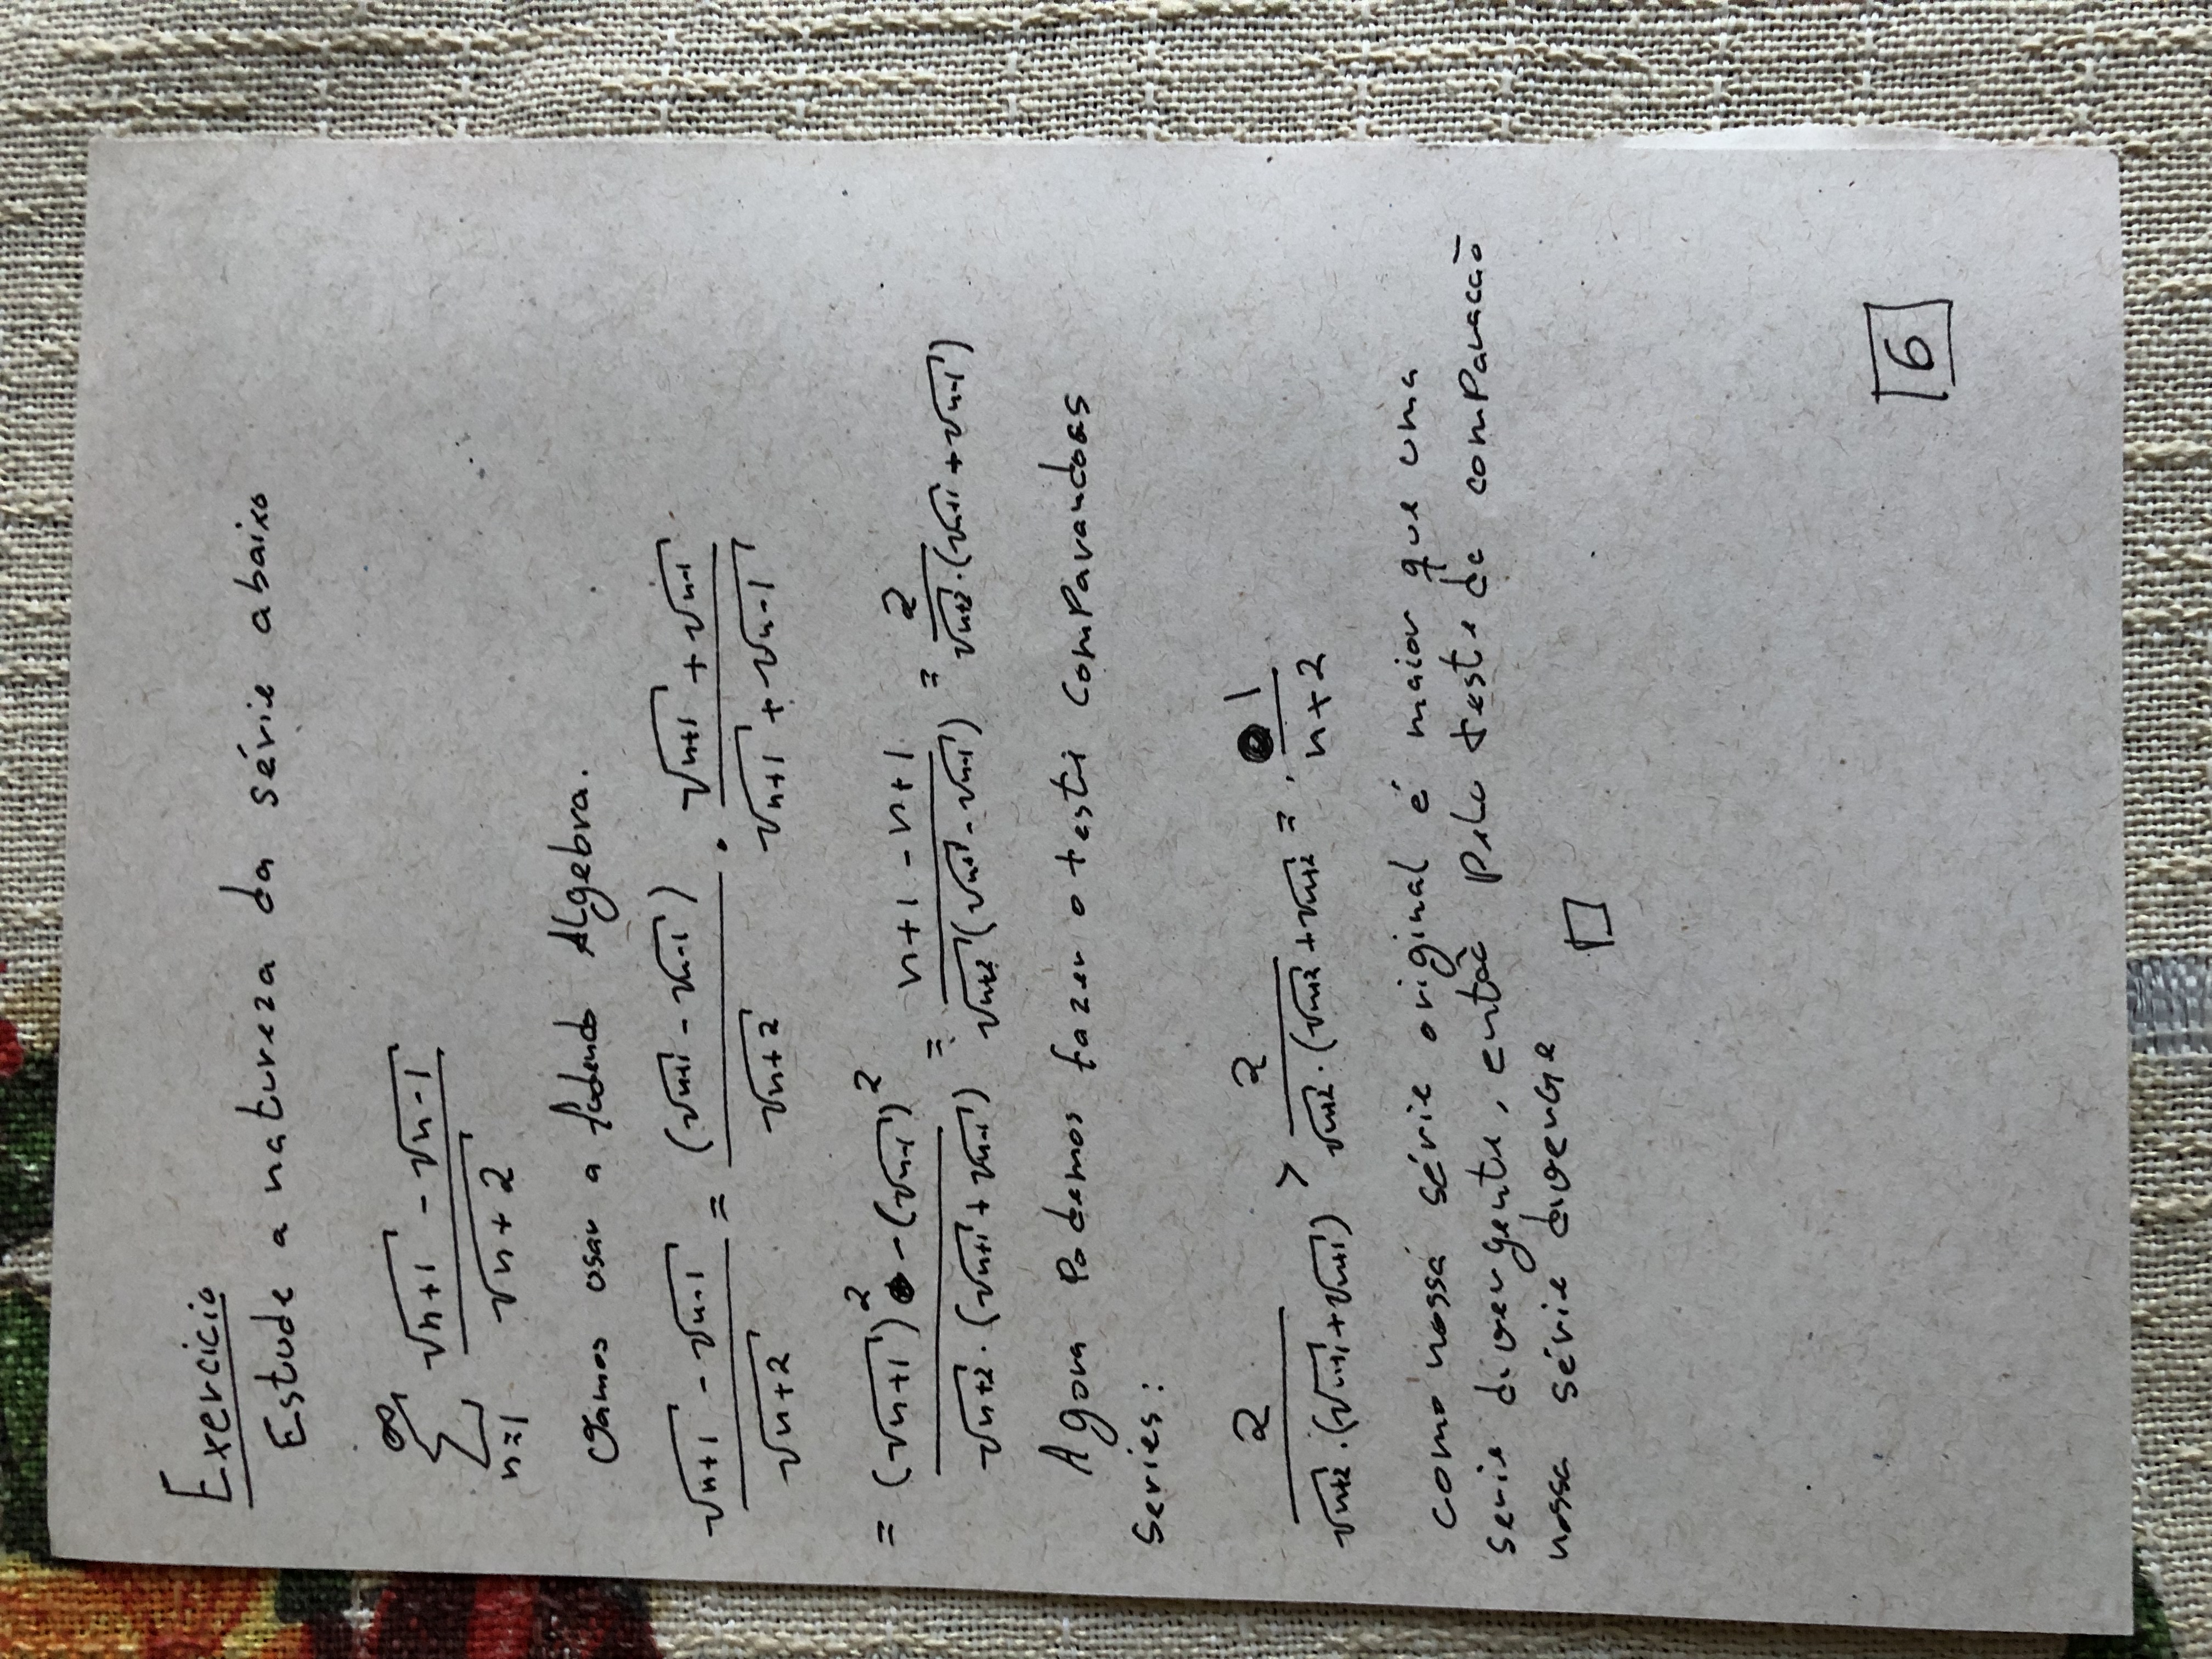 Exercício
Estude a natureza da série abaixo
∞
∑ (√(n+1) - √(n-1)) / √(n+2)
n=1
Vamos usar a
√(n+1) - √(n-1) / √(n+2) = (√(n+1) - √(n-1)) / √(n+2) · (√(n+1) + √(n-1)) / (√(n+1) + √(n-1))
= (√(n+1))² - (√(n-1))² / √(n+2) · (√(n+1) + √(n-1)) = n+1-n+1 / √(n+2) (√(n+1) - √(n-1)) = 2 / √(n+2) · (√(n+1) + √(n-1))
Agora Podemos fazer o teste ComParandoas
series:
2 / √(n+2) · (√(n+1) + √(n+1)) > 2 / √(n+2) · (√(n+2) + √(n+2)) = 1 / n+2
como nossa série original é maior que uma
serie divergente, entao Pelo teste de comParacão
nossa série diverge
□
6